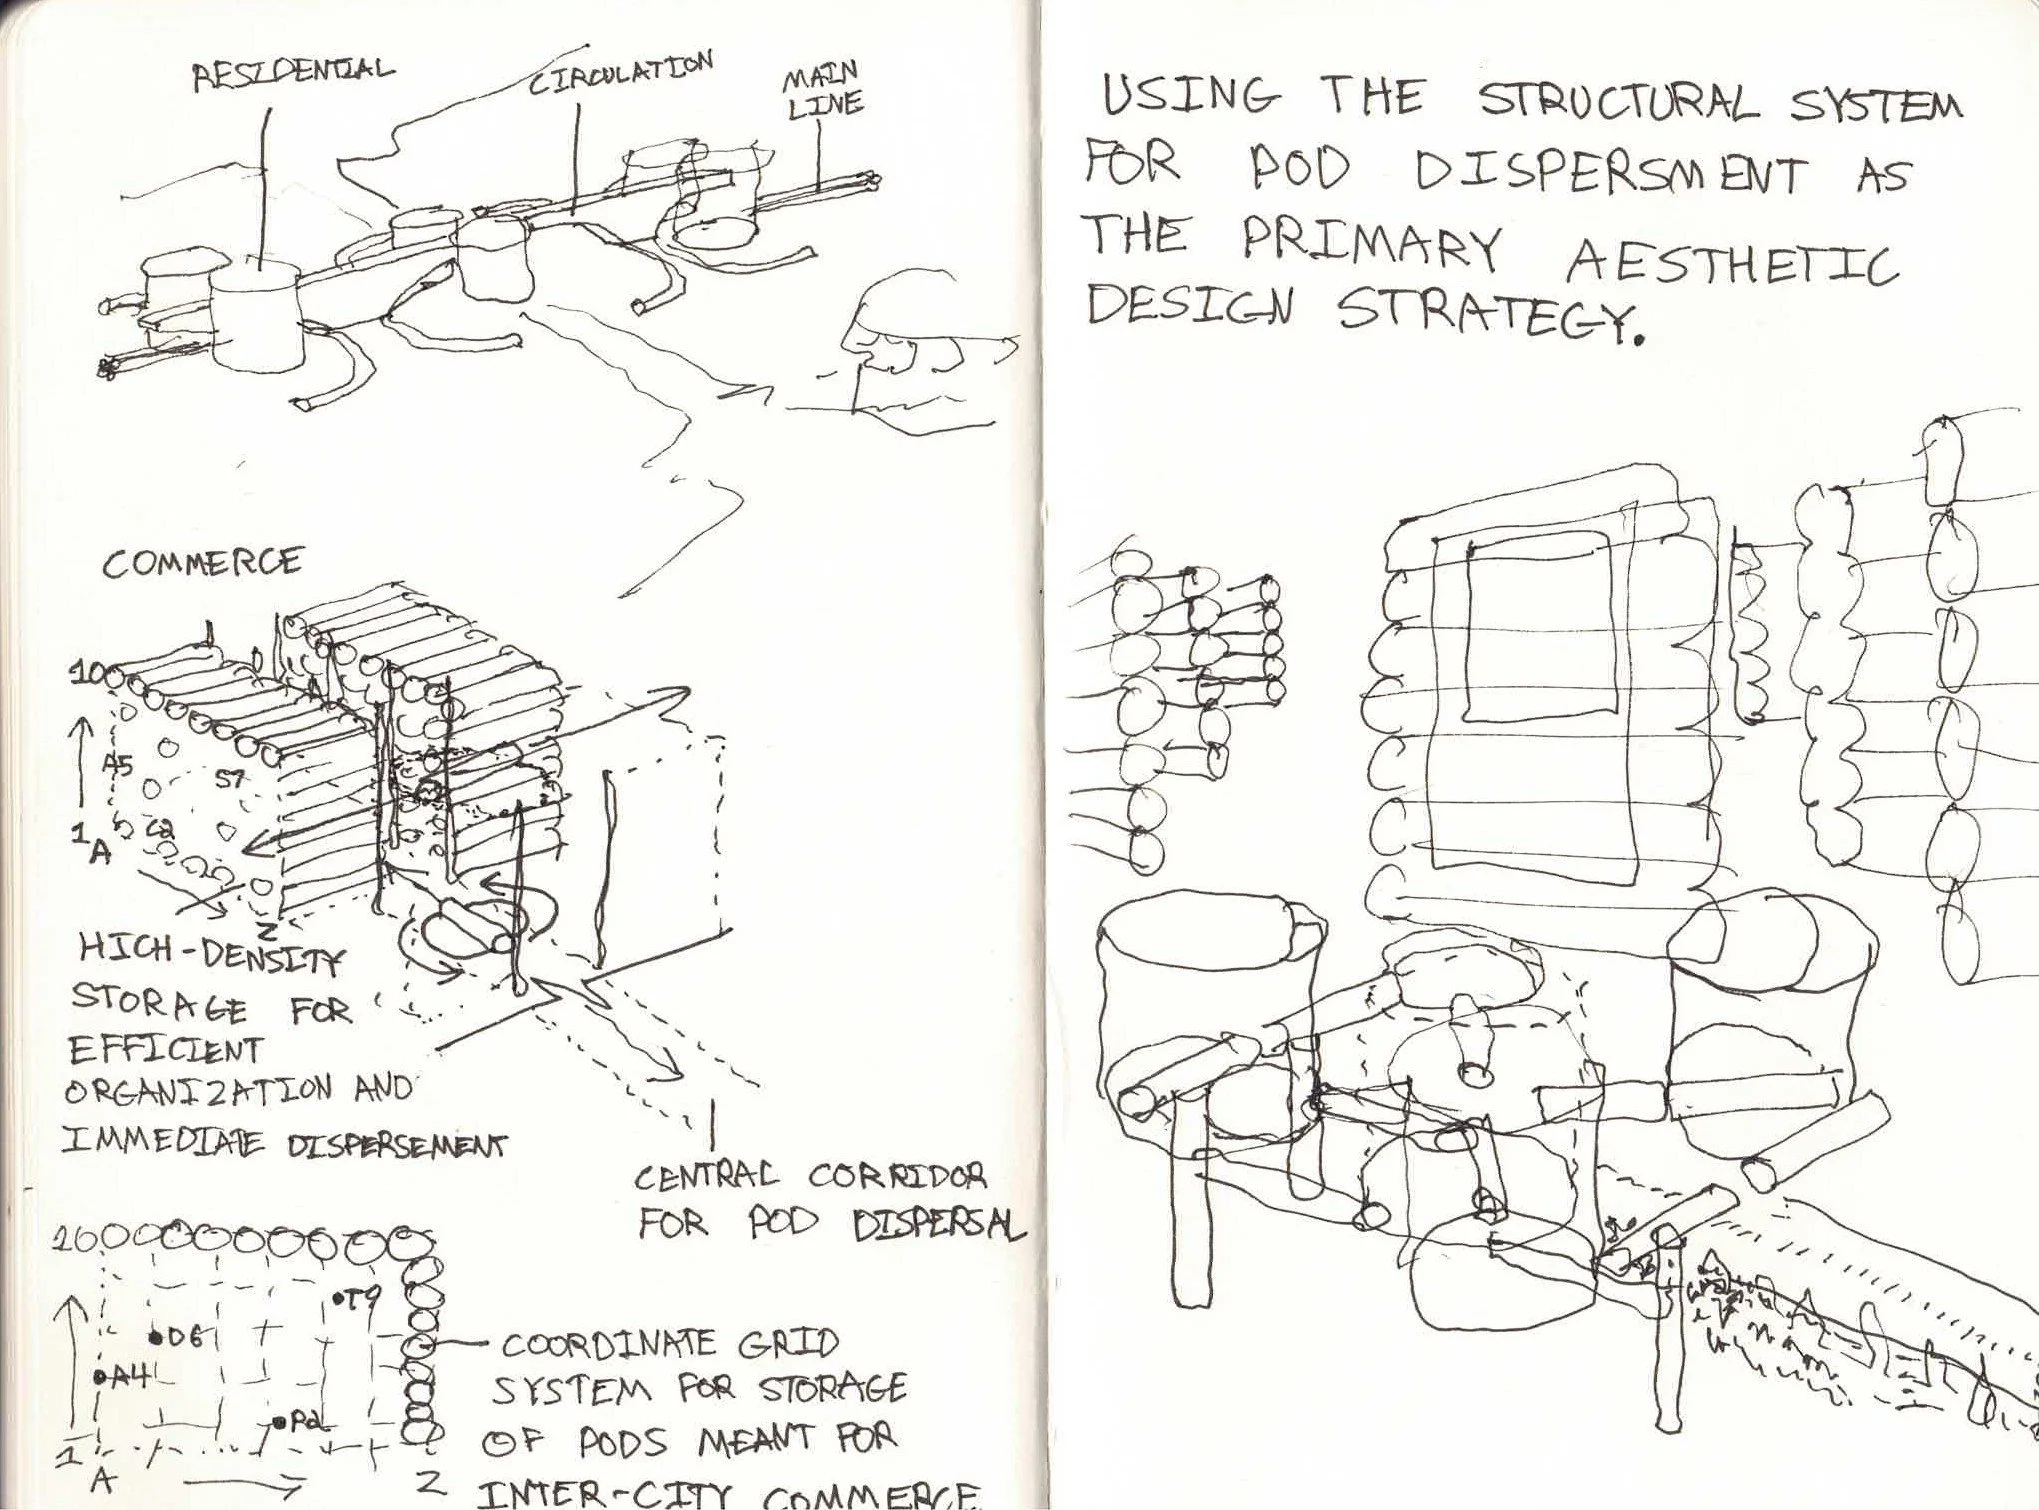 RESIDENTIAL
CIRCULATION
MAIN
LINE
COMMERCE
10
A5
S7
1
C2
A
Z
HIGH-DENSITY
STORAGE FOR
EFFICIENT
ORGANIZATION AND
IMMEDIATE DISPERSEMENT
CENTRAL CORRIDOR
FOR POD DISPERSAL
10
T9
D6
A4
P2
1
A
Z
COORDINATE GRID
SYSTEM FOR STORAGE
OF PODS MEANT FOR
INTER-CITY COMMERCE
USING THE STRUCTURAL SYSTEM
FOR POD DISPERSMENT AS
THE PRIMARY AESTHETIC
DESIGN STRATEGY.